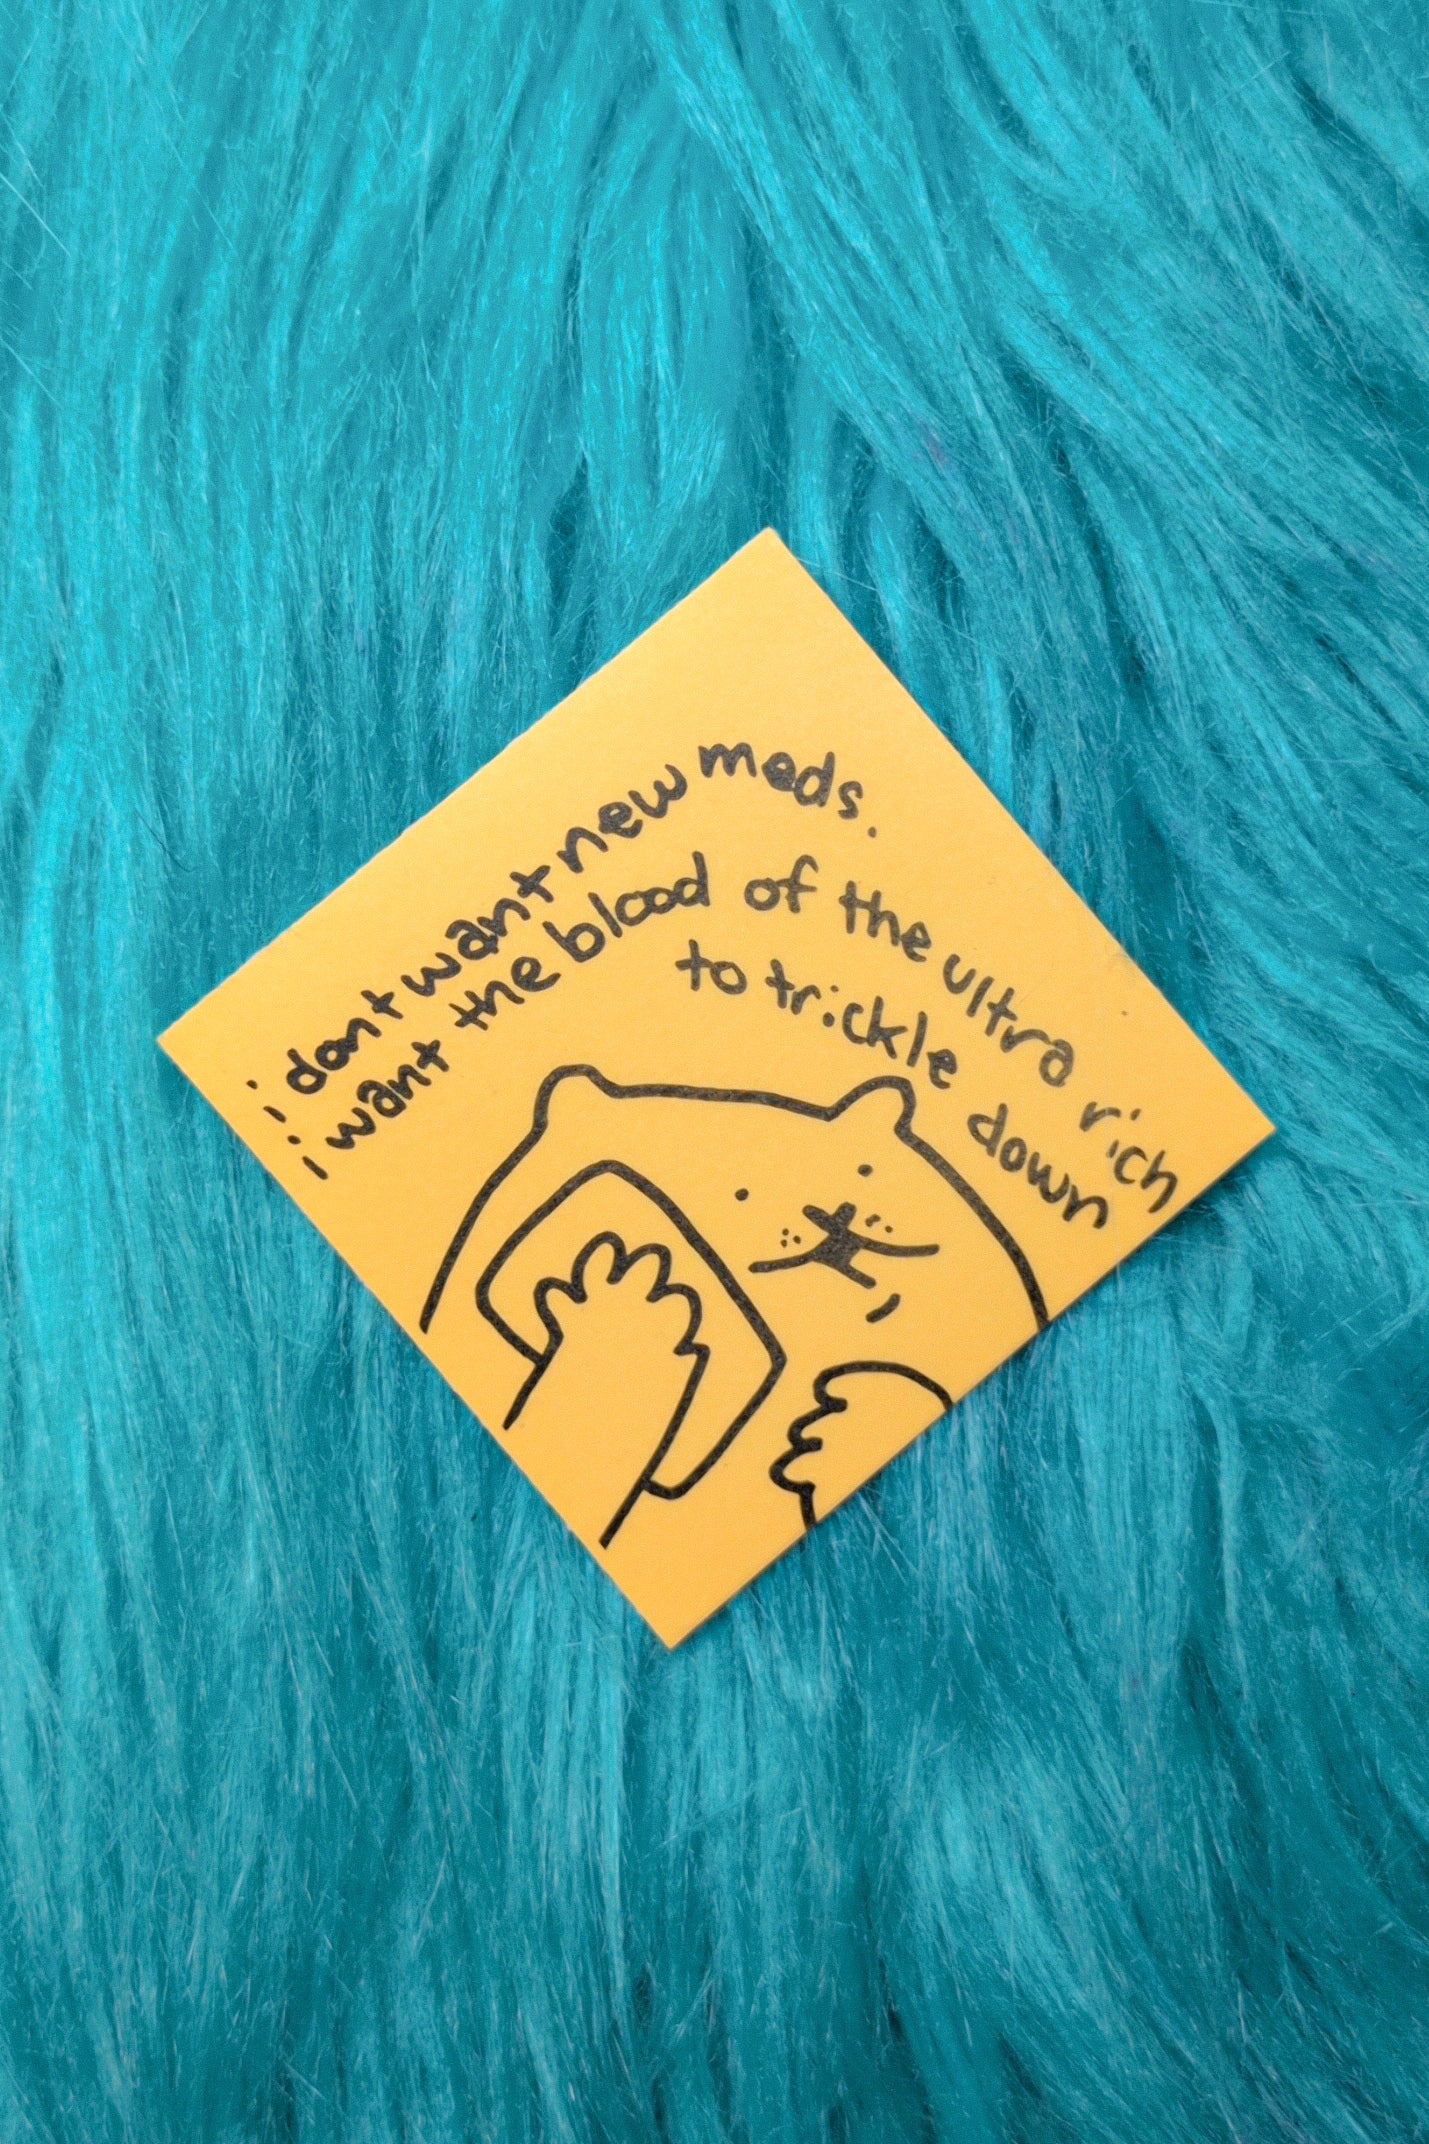 i dont want new meds.
i want the blood of the ultra rich
to trickle down